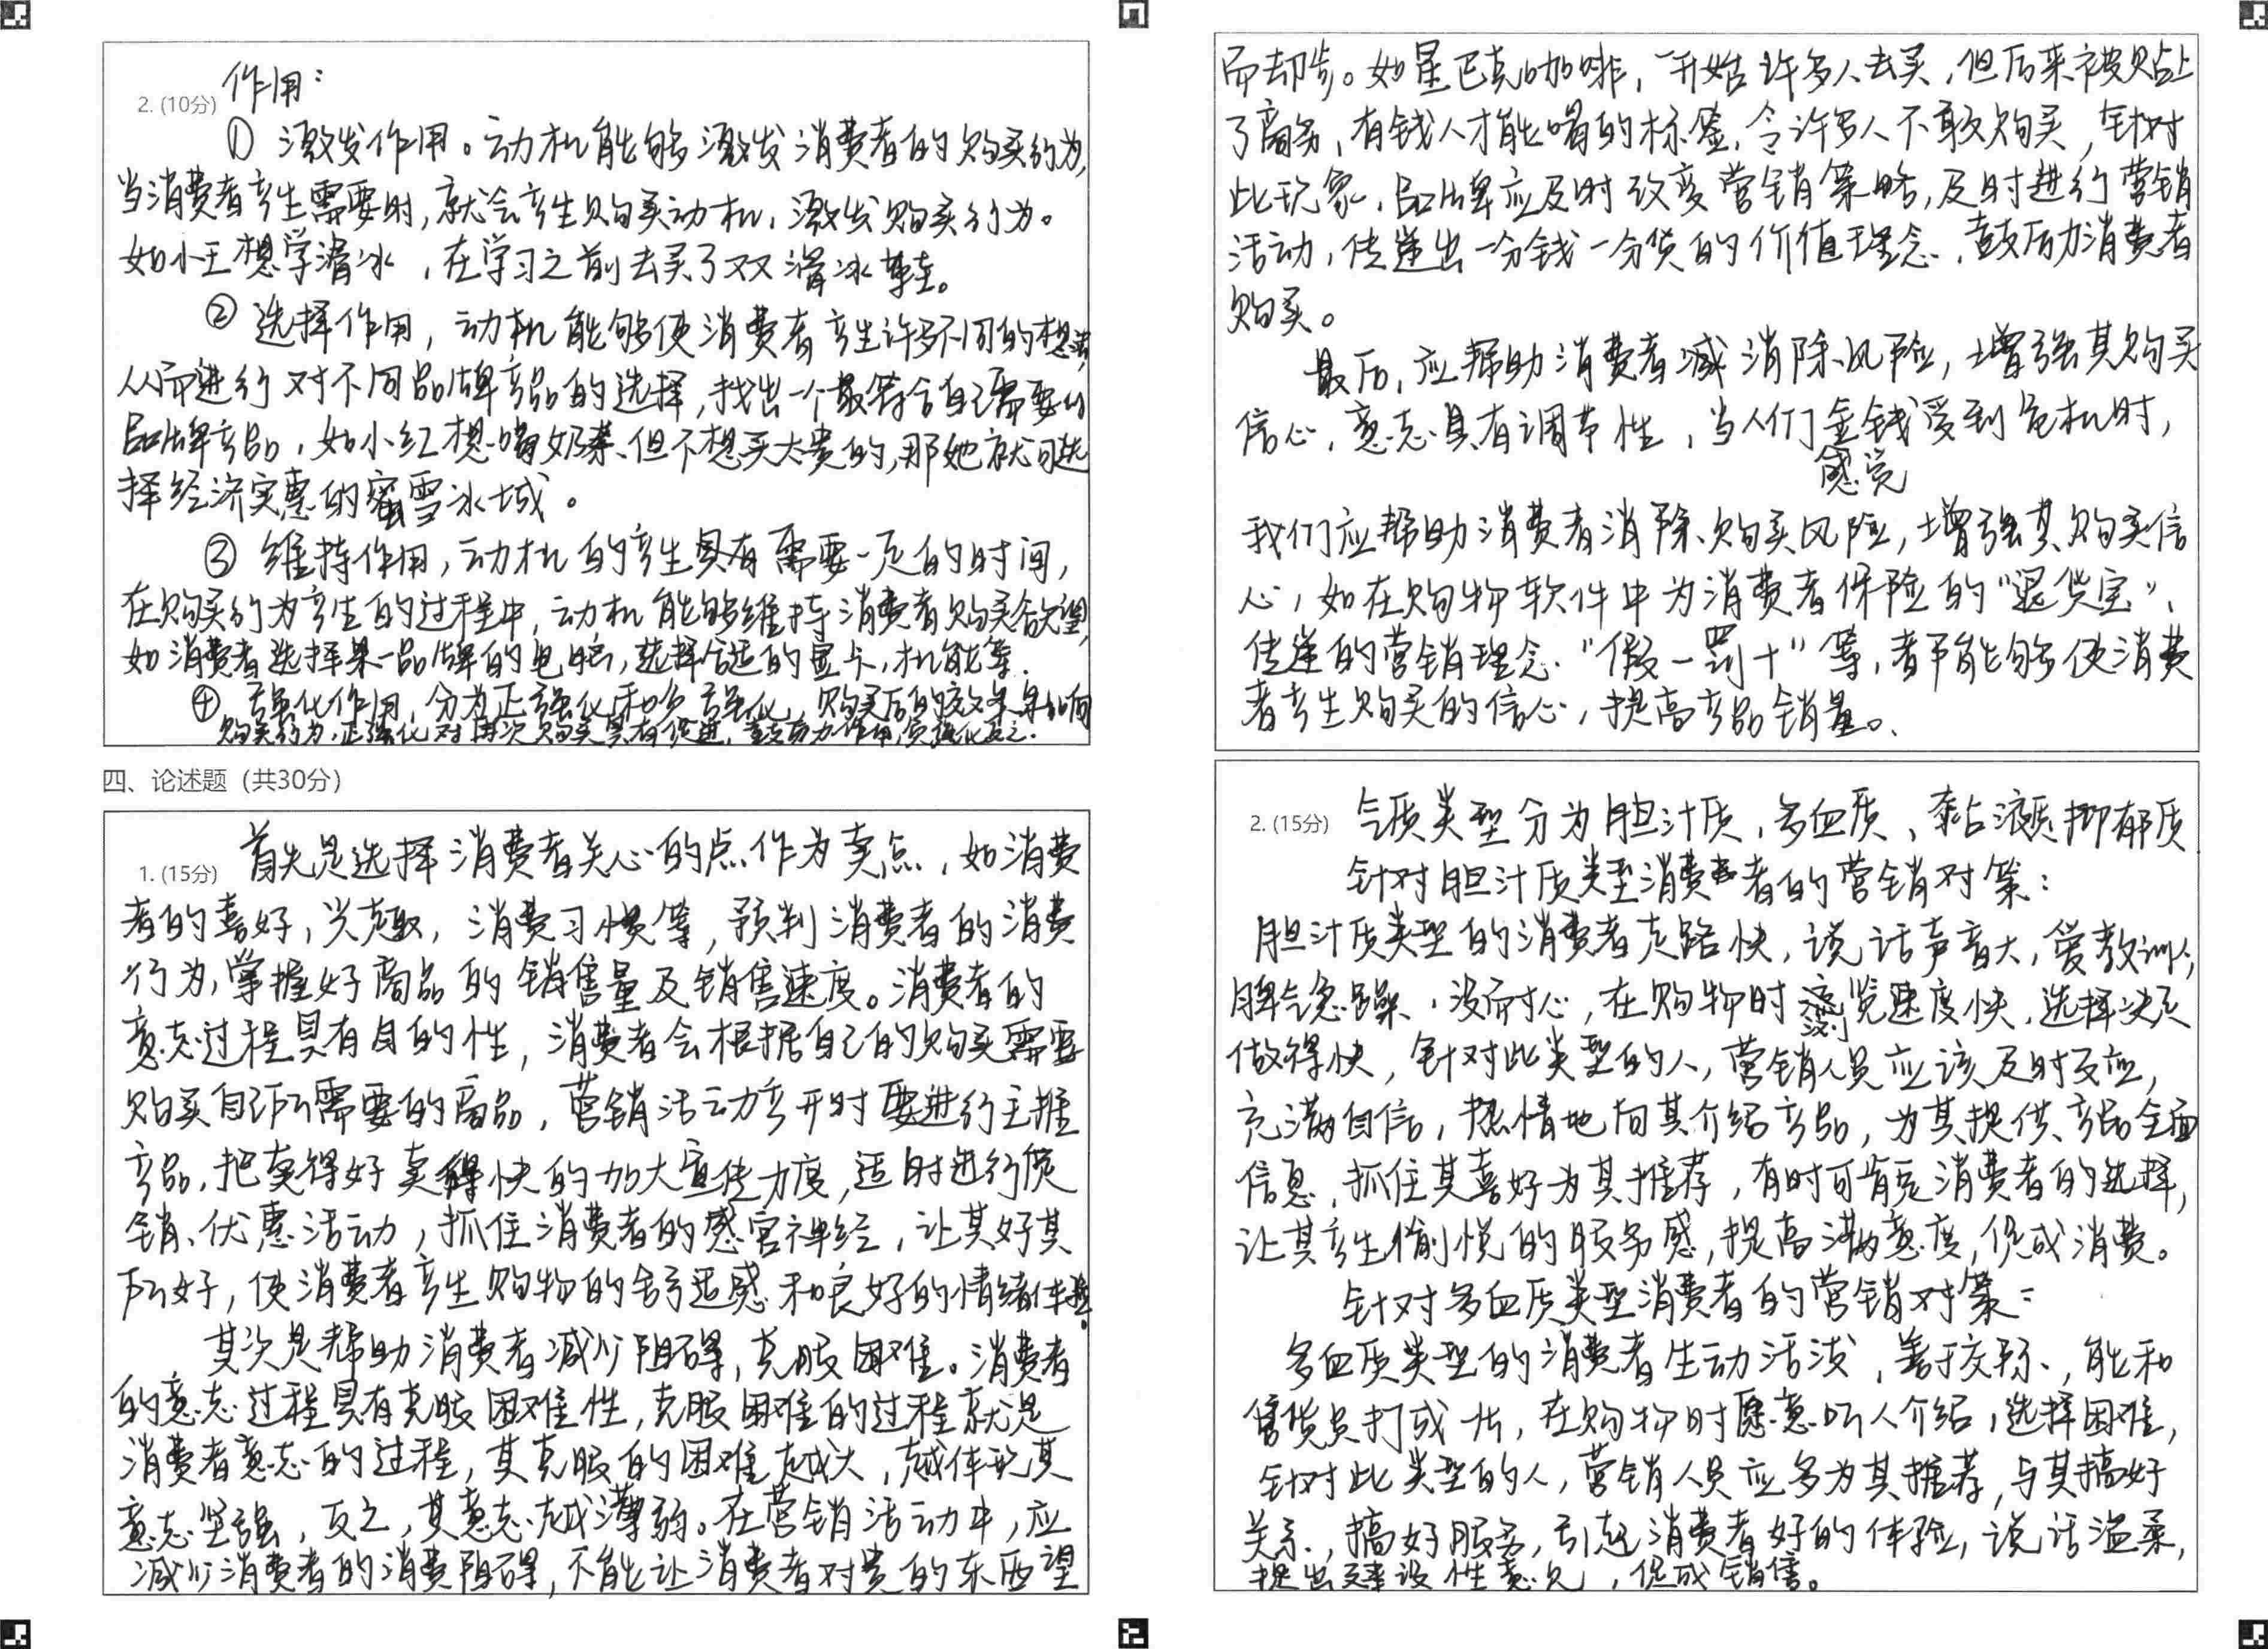 作用：
2. (10分)
① 激发作用。动机能够激发消费者的购买行为,
当消费者产生需要时,就会产生购买动机,激发购买行为。
如小王想学滑冰,在学习之前去买了双滑冰鞋。
② 选择作用,动机能够使消费者产生许多不同的想法,
从而进行对不同品牌产品的选择,找出一个最符合自己需要的
品牌产品,如小红想喝奶茶、但不想买太贵的,那她就可选
择经济实惠的蜜雪冰城。
③ 维持作用,动机的产生具有需要一定的时间,
在购买行为产生的过程中,动机能够维持消费者购买欲望,
如消费者选择某一品牌的电脑,选择合适的显卡,机能等.
④ 强化作用,分为正强化和负强化,购买后的效果影响
购买行为,正强化对再次购买具有促进,鼓励作用,负强化反之.
四、论述题（共30分）
首先是选择消费者关心的点作为卖点,如消费
1. (15分)
者的喜好,兴趣,消费习惯等,预判消费者的消费
行为,掌握好商品的销售量及销售速度。消费者的
意志过程具有目的性,消费者会根据自己的购买需要
购买自己所需要的商品,营销活动季开时要进行主推
产品,把卖得好卖得快的加大宣传力度,适时进行促
销、优惠活动,抓住消费者的感官神经,让其好其
所好,使消费者产生购物的舒适感和良好的情绪体验。
其次是帮助消费者减少阻碍,克服困难。消费者
的意志过程具有克服困难性,克服困难的过程就是
消费者意志的过程,其克服的困难越大,越体现其
意志坚强,反之,其意志越薄弱。在营销活动中,应
减少消费者的消费阻碍,不能让消费者对贵的东西望
而却步。如星巴克咖啡,一开始许多人去买,但后来被贴上
了商务,有钱人才能喝的标签,令许多人不敢购买,针对
此现象,品牌应及时改变营销策略,及时进行营销
活动,传递出一分钱一分货的价值理念,鼓励消费者
购买。
最后,应帮助消费者减消除风险,增强其购买
信心,意志具有调节性,当人们金钱受到危机时,
感觉
我们应帮助消费者消除购买风险,增强其购买信
心,如在购物软件中为消费者保险的“退货宝”、
传递的营销理念“假一罚十”等,都能够使消费
者产生购买的信心,提高产品销量。
气质类型分为胆汁质,多血质,黏液质,抑郁质
2. (15分)
针对胆汁质类型消费者的营销对策：
胆汁质类型的消费者走路快,说话声音大,爱教训人,
脾气急躁,没耐心,在购物时浏览速度快,选择决定
做得快,针对此类型的人,营销人员应该及时反应,
充满自信,热情地向其介绍产品,为其提供产品全面
信息,抓住其喜好为其推荐,有时可肯定消费者的选择,
让其产生愉悦的服务感,提高满意度,促成消费。
针对多血质类型消费者的营销对策：
多血质类型的消费者生动活泼,善于交际,能和
售货员打成一片,在购物时愿意听人介绍,选择困难,
针对此类型的人,营销人员应多为其推荐,与其搞好
关系,搞好服务,引起消费者好的体验,说话温柔,
提出建设性意见,促成销售。